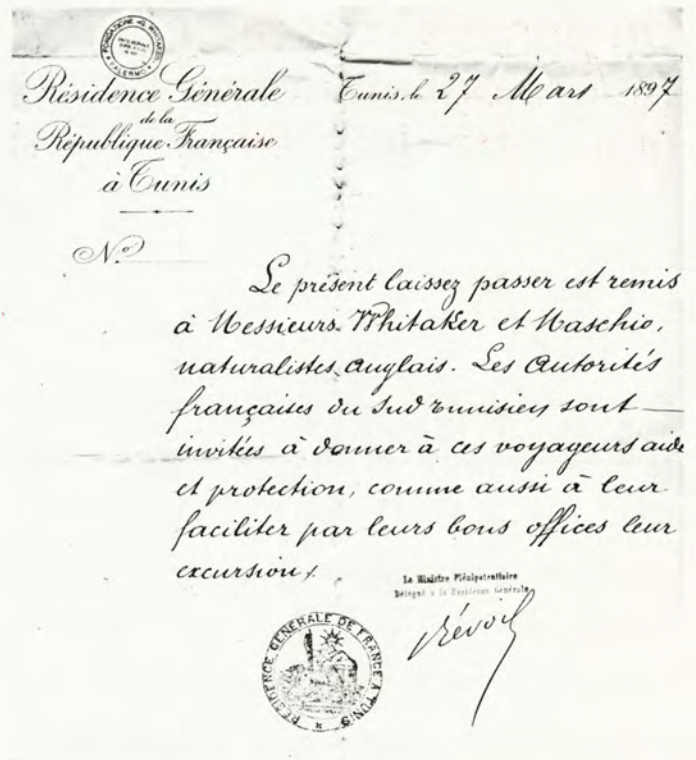 FONDAZIONE "G. WHITAKER"
PALERMO
Résidence Générale
de la
République Française
à Tunis
Tunis, le 27 Mars 1897
No
Le présent laissez passer est remis
à Messieurs Whitaker et Maschio,
naturalistes anglais. Les Autorités
françaises du Sud Tunisien sont
invitées à donner à ces voyageurs aide
et protection, comme aussi à leur
faciliter par leurs bons offices leur
excursion.
Le Ministre Plénipotentiaire
Délégué à la Résidence Générale
Révoil
RÉSIDENCE GÉNÉRALE DE FRANCE A TUNIS